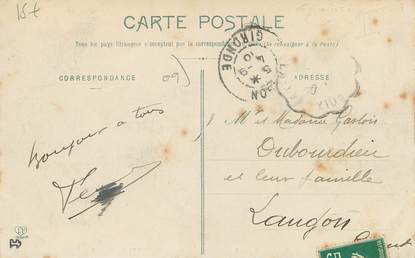 15t
CARTE POSTALE
Tous les pays étrangers n'acceptent pas la correspondance
(Se renseigner à la Poste)
CORRESPONDANCE
ADRESSE
09
GIRONDE
Bonjour à tous
Mr et Madame
Dubourdieu
et leur famille
Langon
5